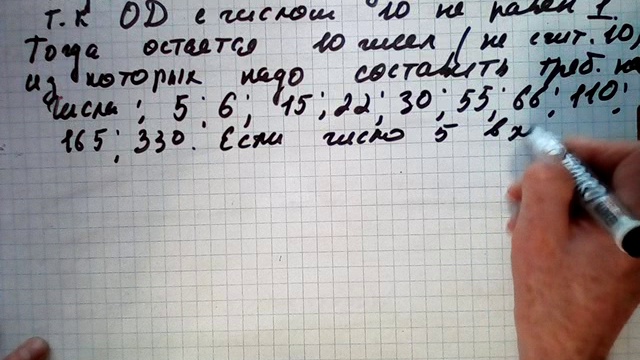 т.к ОД с числом 10 не равен 1.
Тогда остается 10 чисел (не счит. 10)
из которых надо составить треб.
числа; 5; 6; 15; 22; 30; 55; 66; 110;
165; 330. Если число 5 вх